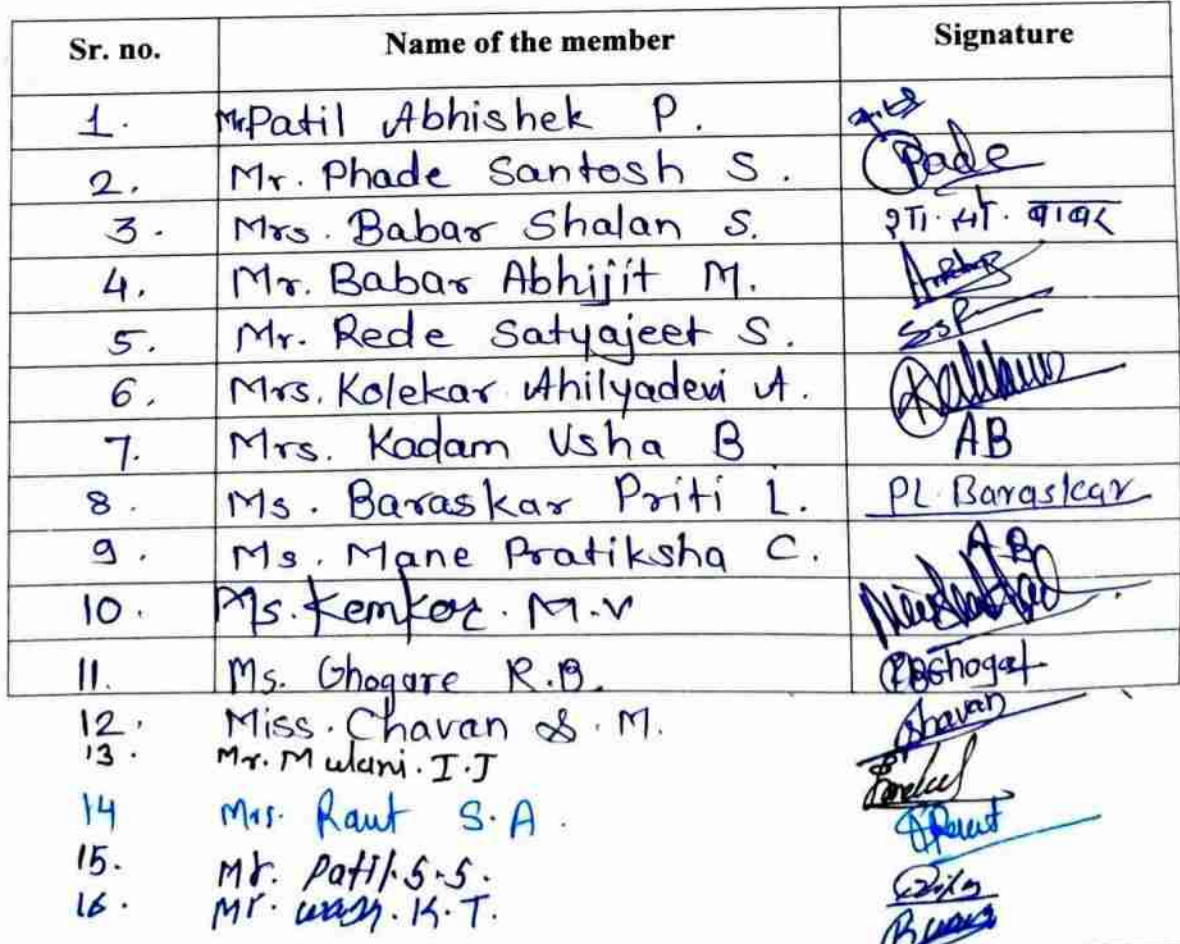 Sr. no. Name of the member Signature
1. Mr Patil Abhishek P.
2. Mr. Phade Santosh S. Pade
3. Mrs. Babar Shalan S. शा. सं. बाबर
4. Mr. Babar Abhijit M.
5. Mr. Rede Satyajeet S. SSR
6. Mrs. Kolekar Ahilyadevi A.
7. Mrs. Kadam Usha B AB
8. Ms. Baraskar Priti L. PL Baraskar
9. Ms. Mane Pratiksha C. AB
10. Ms. Kemkar. M.V
11. Ms. Ghogare R.B. RBGhogar
12. Miss. Chavan S. M. Chavan
13. Mr. Mulani. I. J
14 Mrs. Raut S.A. Raut
15. Mr. Patil. S.S.
16. Mr. K.T.